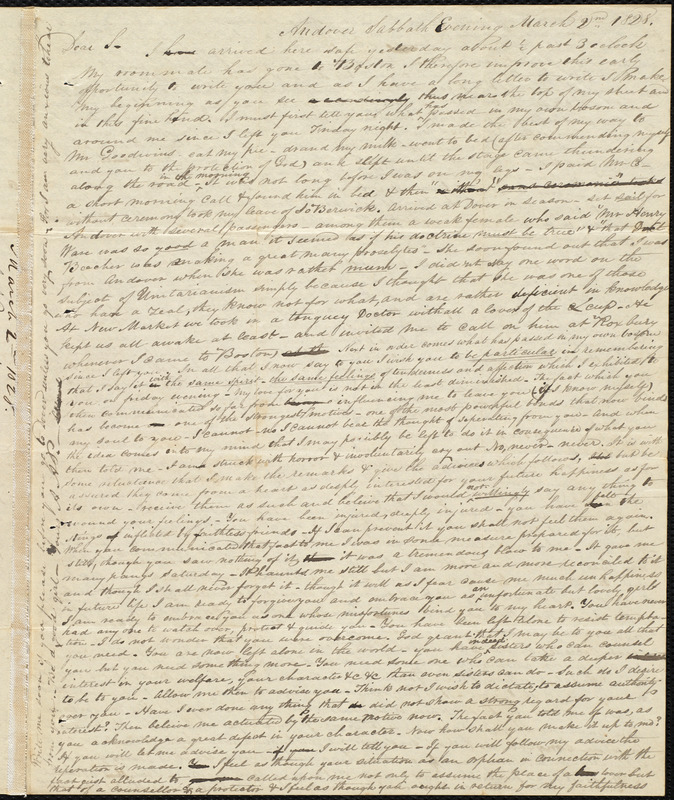 Andover Sabbath Evening March 2nd 1828.
Dear S— I have arrived here safe yesterday about ½ past 3 oclock
My roommate has gone to Boston I therefore improve this early
opportunity to write you and as I have a long letter to write I make
my beginning as you see thus near the top of my sheet and
in this fine hand. I must first tell you what has passed in my own bosom and
around me since I left you Friday night. I made the best of my way to
Mr Goodwins - eat my pie - drank my milk - went to bed (after commending myself
and you to the protection of God) and slept until the stage came thundering
along the road - in the morning It was not long before I was on my legs - I paid Mr C-
a short morning call & found him in bed & then
without ceremony took my leave of So Berwick. arrived at Dover in season - set sail for
Andover with several passengers - among them a weak female who said "Mr Henry
Ware was so good a man it seemed as if his doctrine must be true" & "that Doct
Beecher was making a great many proselytes". She soon found out that I was
from Andover when she was rather mum - I did not say one word on the
subject of Unitarianism simply because I thought that she was one of those
who have a zeal, they know not for what, and are rather deficient in knowledge
At New Market we took in a tonguey Doctor with all a love of the Cup - &c
kept us all awake at least - and invited me to call on him at Roxbury
whenever I came to Boston, Next in order comes what has passed in my own bosom
since I left you. In all that I now say to you I wish you to be particular in remembering
that I say it with the same spirit - the same feelings of tenderness and affection which I exhibited to
you on friday evening - My love for you is not in the least diminished. The fact which you
then communicated so far from influencing me to leave you (if I know myself)
has become one of the strongest motives - one of the most powerful bonds that now binds
my soul to you - I cannot - no I cannot bear the thought of separating from you - And when
the idea comes into my mind that I may possibly be left to do it in consequence of what you
then told me - I am struck with horror & involuntarily cry out No, never - never. It is with
some reluctance that I make the remarks & give the advice which follows, but be
assured they come from a heart as deeply interested for your future happiness as for
its own - receive them as such and believe that I would not willingly say any thing to
wound your feelings - You have been injured, deeply injured - you have felt the
stings inflicted by faithless friends - If I can prevent it you shall not feel them again.
When you communicated that fact to me I was in some measure prepared for it, but
still, though you saw nothing of it, it was a tremendous blow to me - It gave me
many pangs saturday - It haunted me still but I am more and more reconciled to it
and though I shall never forget it - though it will as I fear cause me much unhappiness
in future life I am ready to forgive you and embrace you as an unfortunate but lovely girl
I am ready to embrace you as one whose misfortunes bind you to my heart. You have never
had any one to watch over, protect & guide you - You have been left alone to resist tempta-
tion - I do not wonder that you were overcome. God grant that I may be to you all that
you need - You are now left alone in the world - you have indeed sisters who can counsel
you but you need something more. You need some one who can take a deeper
interest in your welfare, your character &c &c than even sisters can do - Such do I desire
to be to you - Allow me then to advise you - Think not I wish to dictate, to assume authority
over you - Have I ever done any thing that did not show a strong regard for your
interest? Then believe me actuated by the same motive now. The fact you told me of was, as
you acknowledge a great defect in your character. Now how shall you make it up to me?
If you will let me advise you - I will tell you - If you will follow my advice the
reparation is made. I feel as though your situation as an orphan in connection with the
fact just alluded to called upon me not only to assume the place of a lover but
that of a counsellor & a protector & I feel as though you ought in return for my faithfulness
March 2nd 1828.